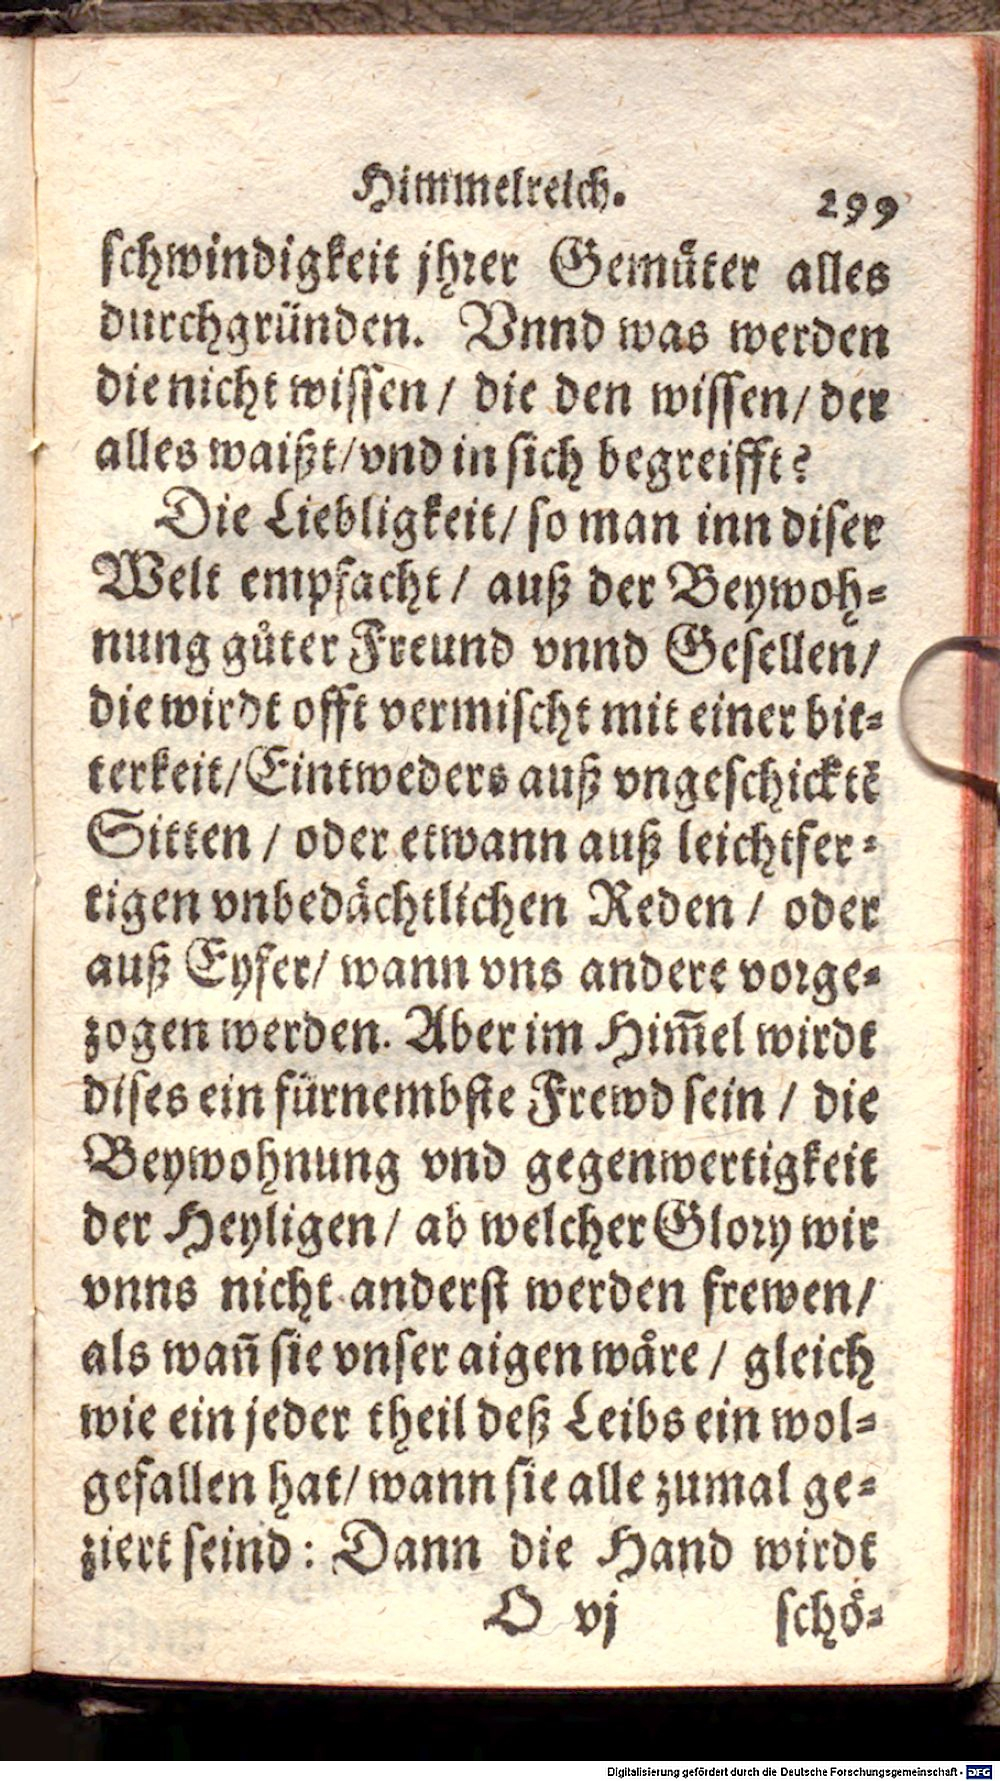 Himmelreich. 299
schwindigkeit jhrer Gemuͤter alles
durchgründen. Vnnd was werden
die nicht wissen / die den wissen / der
alles waißt / vnd in sich begreifft?
Die Liebligkeit / so man inn diser
Welt empfacht / auß der Beywoh-
nung guͦter Freund vnnd Gesellen /
die wirdt offt vermischt mit einer bit-
terkeit / Eintweders auß vngeschicktẽ
Sitten / oder etwann auß leichtfer-
tigen vnbedächtlichen Reden / oder
auß Eyfer / wann vns andere vorge-
zogen werden. Aber im Him̃el wirdt
dises ein fürnembste Frewd sein / die
Beywohnung vnd gegenwertigkeit
der Heyligen / ab welcher Glory wir
vnns nicht anderst werden frewen /
als wañ sie vnser aigen waͤre / gleich
wie ein jeder theil deß Leibs ein wol-
gefallen hat / wann sie alle zumal ge-
ziert seind: Dann die Hand wirdt
O vj schoͤ-
Digitalisierung gefördert durch die Deutsche Forschungsgemeinschaft - DFG